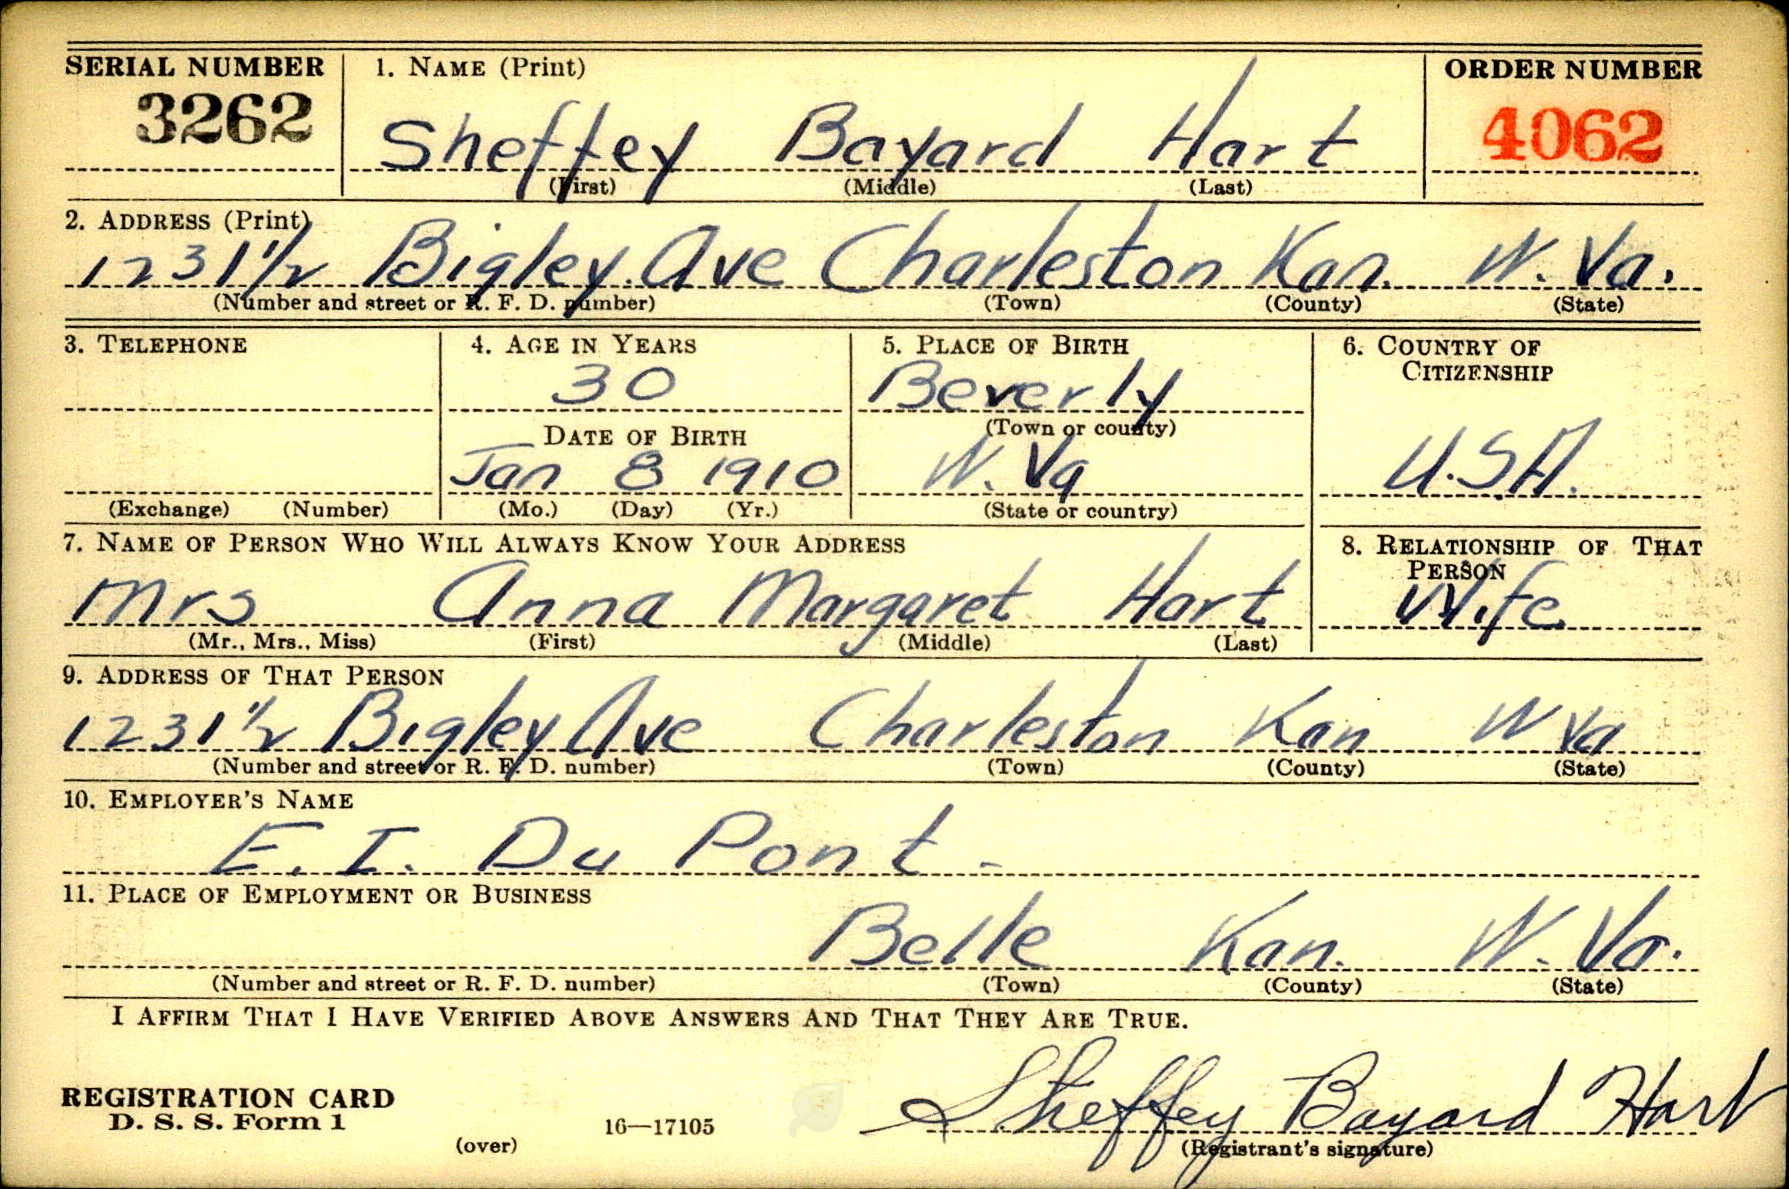 SERIAL NUMBER 1. NAME (Print) ORDER NUMBER
3262 Sheffey Bayard Hart 4062
(First) (Middle) (Last)
2. ADDRESS (Print)
1231 1/2 Bigley Ave Charleston Kan. W. Va.
(Number and street or R. F. D. number) (Town) (County) (State)
3. TELEPHONE 4. AGE IN YEARS 5. PLACE OF BIRTH 6. COUNTRY OF CITIZENSHIP
30 Beverly
DATE OF BIRTH (Town or county)
Jan 8 1910 W. Va U.S.A.
(Exchange) (Number) (Mo.) (Day) (Yr.) (State or country)
7. NAME OF PERSON WHO WILL ALWAYS KNOW YOUR ADDRESS 8. RELATIONSHIP OF THAT PERSON
Mrs Anna Margaret Hart Wife
(Mr., Mrs., Miss) (First) (Middle) (Last)
9. ADDRESS OF THAT PERSON
1231 1/2 Bigley Ave Charleston Kan W Va
(Number and street or R. F. D. number) (Town) (County) (State)
10. EMPLOYER'S NAME
E. I. Du Pont -
11. PLACE OF EMPLOYMENT OR BUSINESS
Belle Kan. W. Va.
(Number and street or R. F. D. number) (Town) (County) (State)
I AFFIRM THAT I HAVE VERIFIED ABOVE ANSWERS AND THAT THEY ARE TRUE.
Sheffey Bayard Hart
REGISTRATION CARD
D. S. S. Form 1
(over) 16—17105 (Registrant's signature)